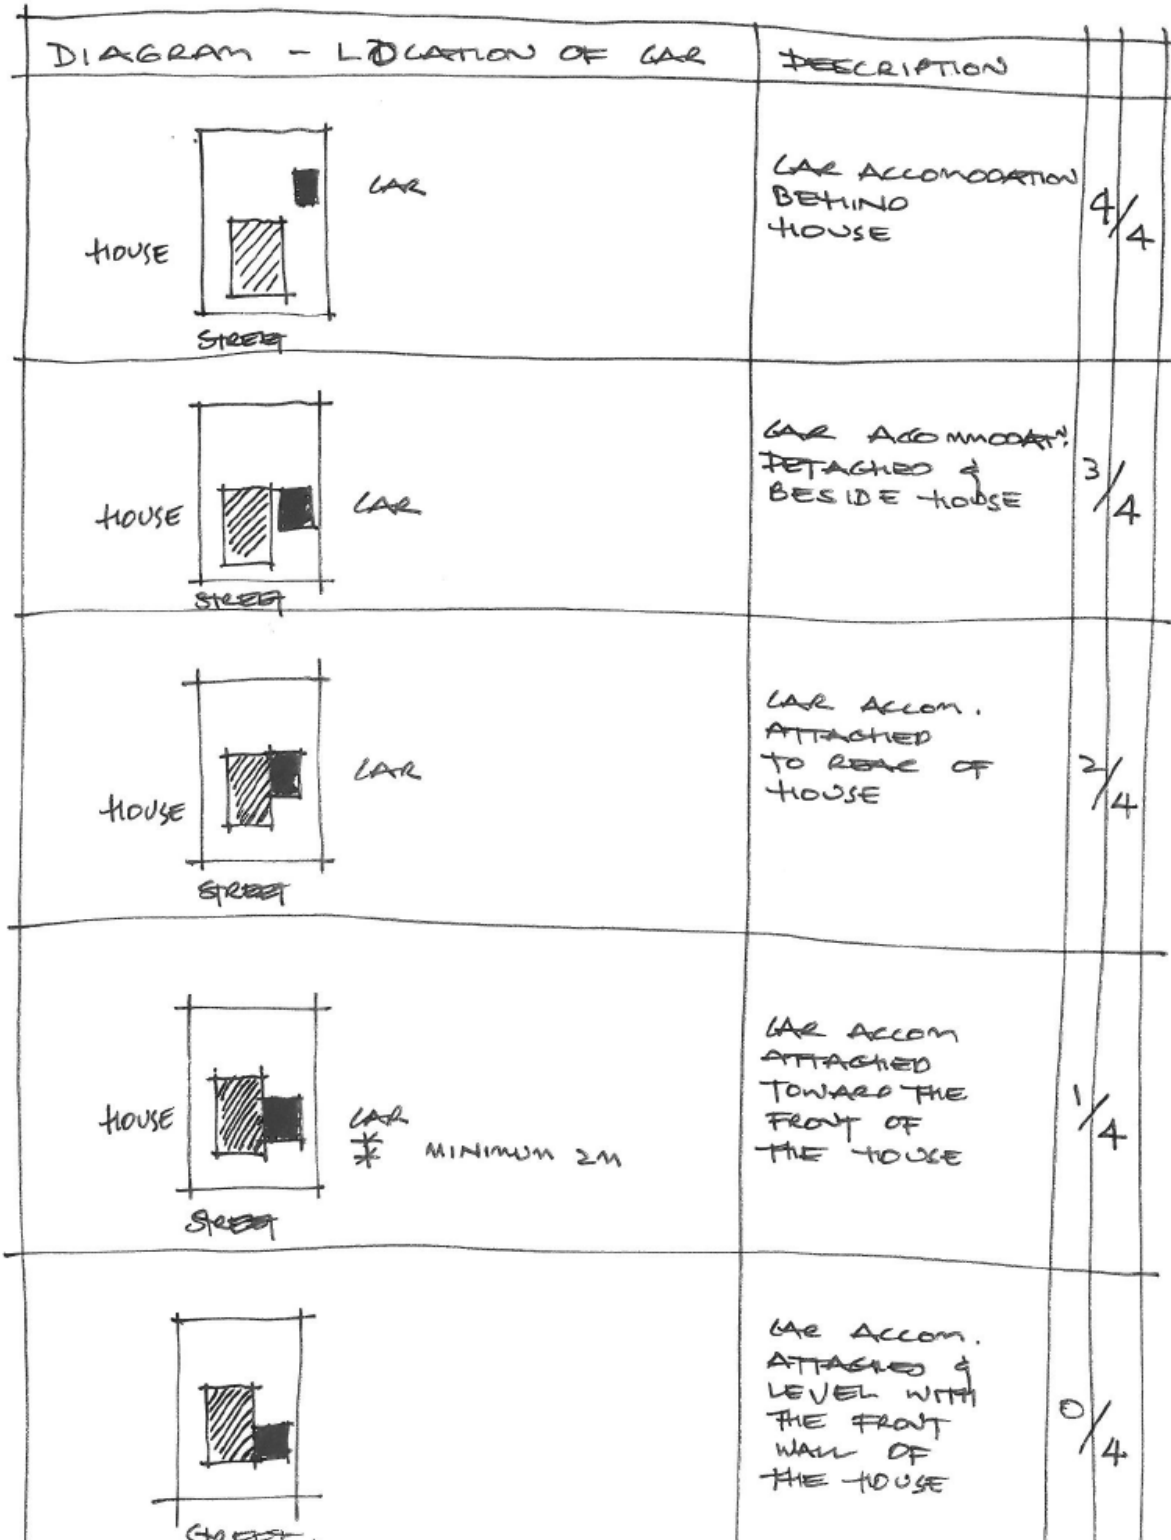 DIAGRAM - LOCATION OF CAR
DESCRIPTION
CAR
HOUSE
STREET
CAR ACCOMODATION
BEHIND
HOUSE
4/4
HOUSE
CAR
STREET
CAR ACOMMODATN.
DETACHED &
BESIDE HOUSE
3/4
CAR
HOUSE
STREET
CAR ACCOM.
ATTACHED
TO REAR OF
HOUSE
2/4
HOUSE
CAR
* MINIMUM 2M
STREET
CAR ACCOM
ATTACHED
TOWARD THE
FRONT OF
THE HOUSE
1/4
STREET
CAR ACCOM.
ATTACHED &
LEVEL WITH
THE FRONT
WALL OF
THE HOUSE
0/4